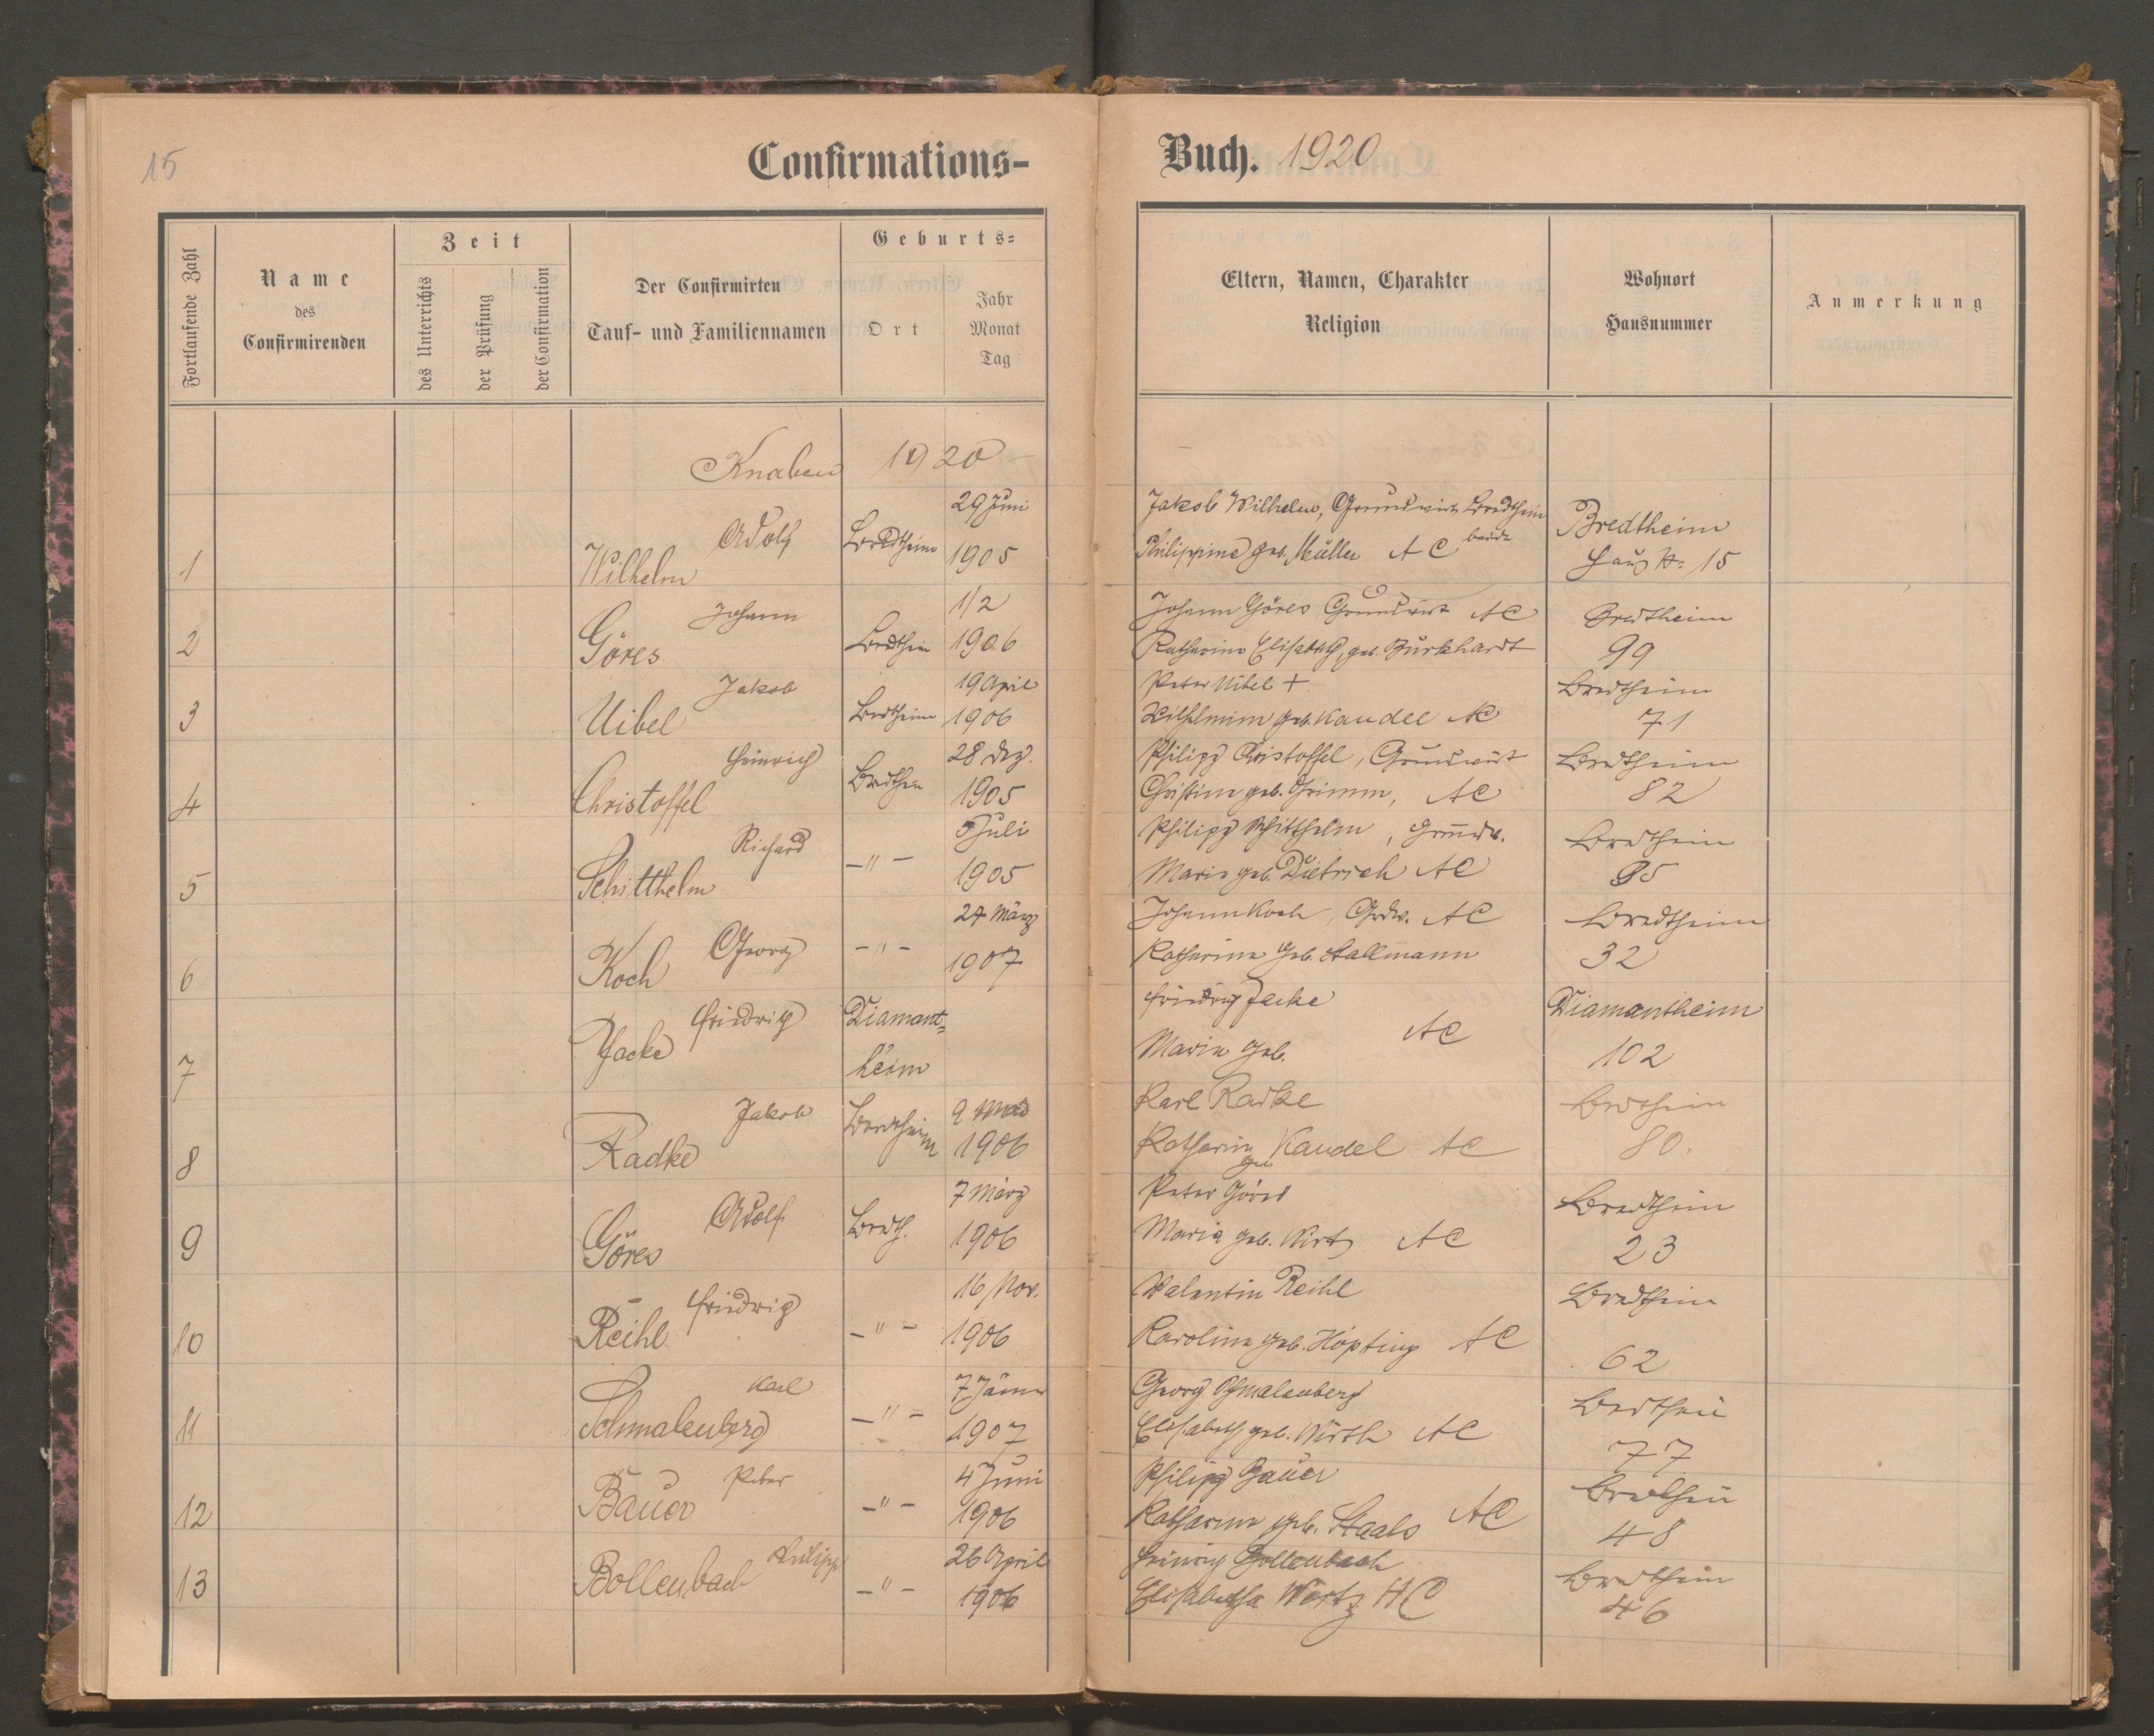 15
Confirmations-
Buch. 1920
Fortlaufende Zahl
Name
des
Confirmirenden
Zeit
des Unterrichts
der Prüfung
der Confirmation
Der Confirmirten
Tauf- und Familiennamen
Geburts-
Ort
Jahr
Monat
Tag
Eltern, Namen, Charakter
Religion
Wohnort
Hausnummer
Anmerkung
Knaben 1920
29 Juni
Jakob Wilhelm, Grundwirt Bredtheim
Adolf Bredtheim beide Bredtheim
1 Wilhelm 1905 Philippine geb. Müller AC Haus N: 15
Johann 1/2 Johann Göres Grundwirt AC Bredtheim
2 Göres Bredtheim 1906 Katharina Elisabeth, geb. Burkhardt 99
Jakob 19 April Peter Uibel + Bredtheim
3 Uibel Bredtheim 1906 Wilhelmine geb. Kandel AC 71
Heinrich 28 Dez. Philipp Christoffel, Grundwirt Bredtheim
4 Christoffel Bredtheim 1905 Christine geb. Grimm, AC 82
Richard 5 Juli Philipp Schitthelm, Grundw. Bredtheim
5 Schitthelm -"- 1905 Maria geb. Dietrich AC 95
27 März Johann Koch, Grdw. AC Bredtheim
6 Koch Georg -"- 1907 Katharina geb. Stallmann 32
Friedrich Diamant= Friedrich Jacke Diamantheim
7 Jacke heim Maria geb. AC 102
Jakob 9 Mai Karl Radke Bredtheim
8 Radke Bredtheim 1906 Katharina geb. Kandel AC 80.
Adolf 7 März Peter Göres Bredtheim
9 Göres Bredth. 1906 Maria geb. Wirtz AC 23
Friedrich 16 Nov. Valentin Reihl Bredtheim
10 Reihl -"- 1906 Karolina geb. Höpting AC 62
Karl 7 Jänner Georg Schmalenberg Bredtheim
11 Schmalenberg -"- 1907 Elisabeth geb. Wirth AC 77
Peter 4 Juni Philipp Bauer Bredtheim
12 Bauer -"- 1906 Katharina geb. Staabs AC 48
Philipp 26 April Heinrich Bollenbach Bredtheim
13 Bollenbach -"- 1906 Elisabetha Wirtz HC 46